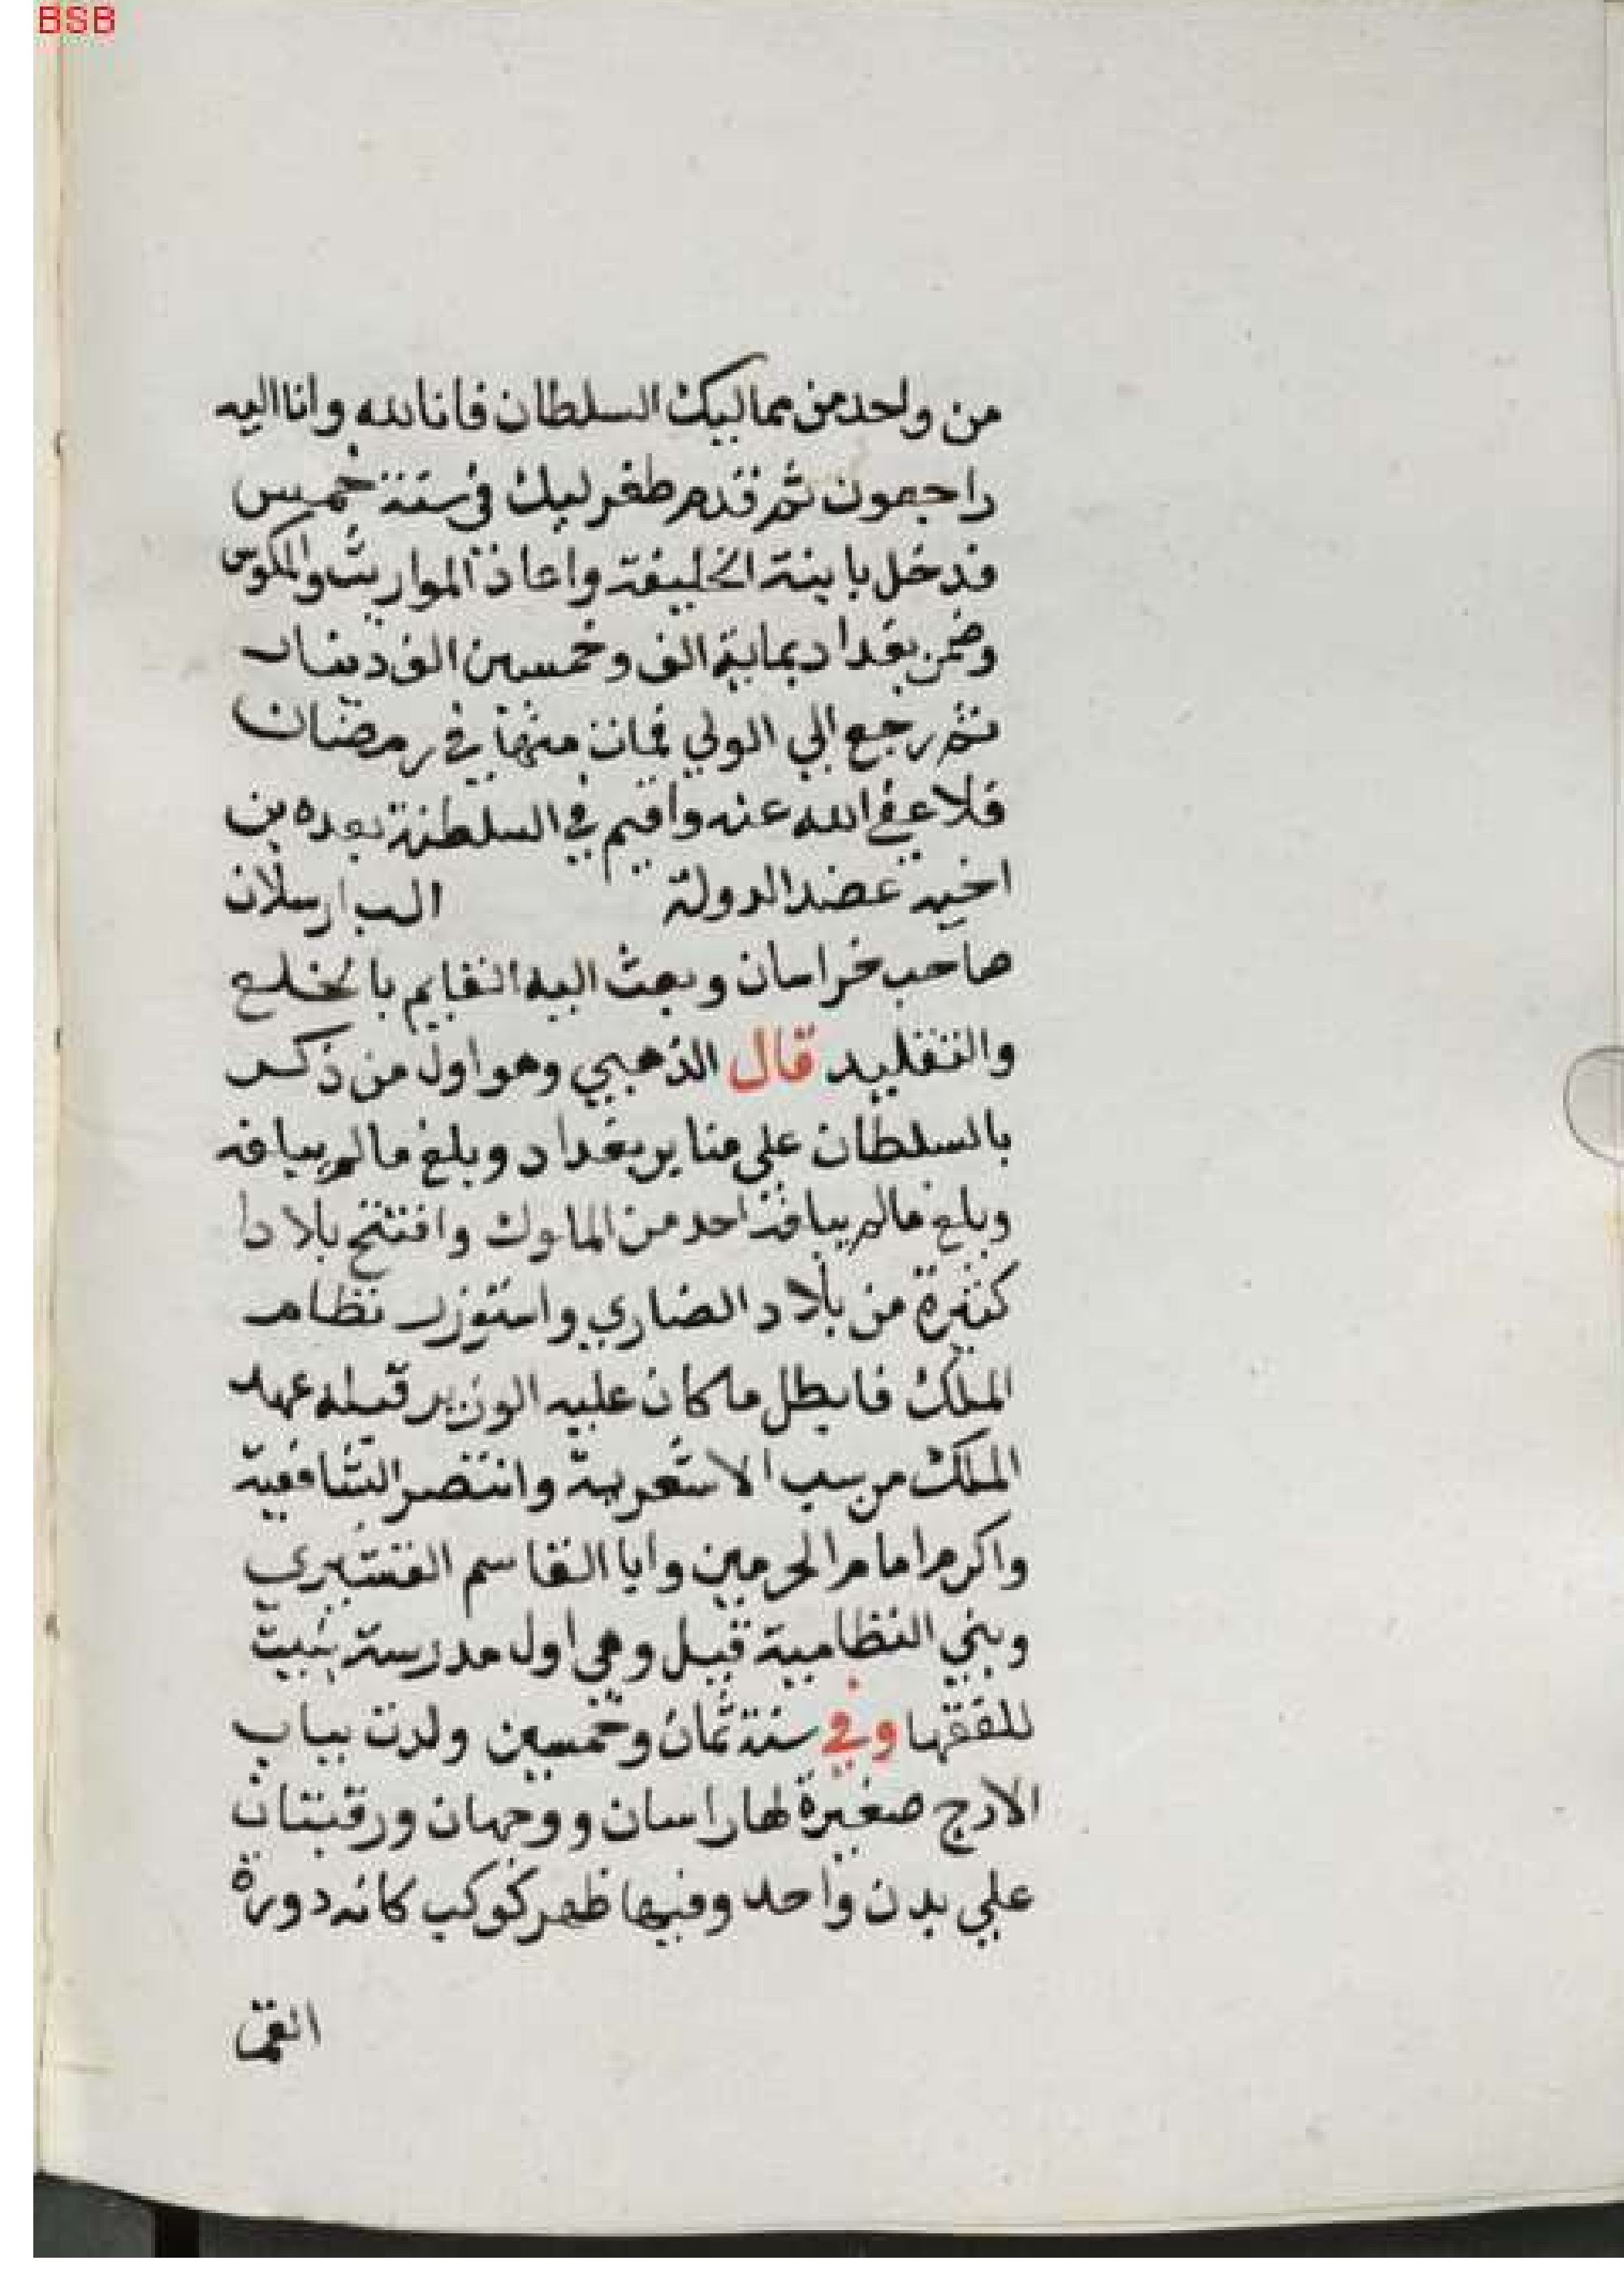 BSB
من واحد من مماليك السلطان فانا لله وانا اليه
راجعون ثم قدم طغرلبك في سنة خمس
فدخل بابنة الخليفة واعاد المواريث والمكوس
وضمن بغداد بماية الف وخمسين الف دينار
ثم رجع الي الري فمات منها في رمضان
فلا عفي الله عنه واقيم في السلطنة بعده بن
اخيه عضد الدولة الب ارسلان
صاحب خراسان وبعث اليه القايم بالخلع
والتقليد قال الذهبي وهو اول من ذكر
بالسلطان علي منابر بغداد وبلغ مالم يبلغه
وبلغ مالم يبلغه احد من الملوك وافتتح بلادا
كثيرة من بلاد النصاري واستوزر نظام
الملك فابطل ما كان عليه الوزير قبله عميد
الملك من سب الاشعرية وانتصر الشافعية
واكرم امام الحرمين وابا القاسم القشيري
وبني النظامية قبل وهي اول مدرسة بنيت
للفقها وفي سنة ثمان وخمسين ولدت بباب
الازج صغيرة لها راسان ووجهان ورقبتان
علي بدن واحد وفيها ظهر كوكب كانه دورة
القمر